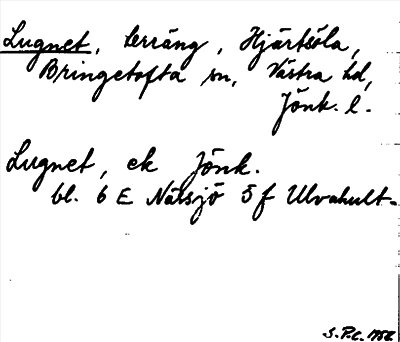 Lugnet, terräng, Hjärtsöla,
Bringetofta sn, Västra hd,
Jönk. l.
Lugnet, ek Jönk.
bl. 6 E Nässjö 5 f Ulvahult
S.P.C.